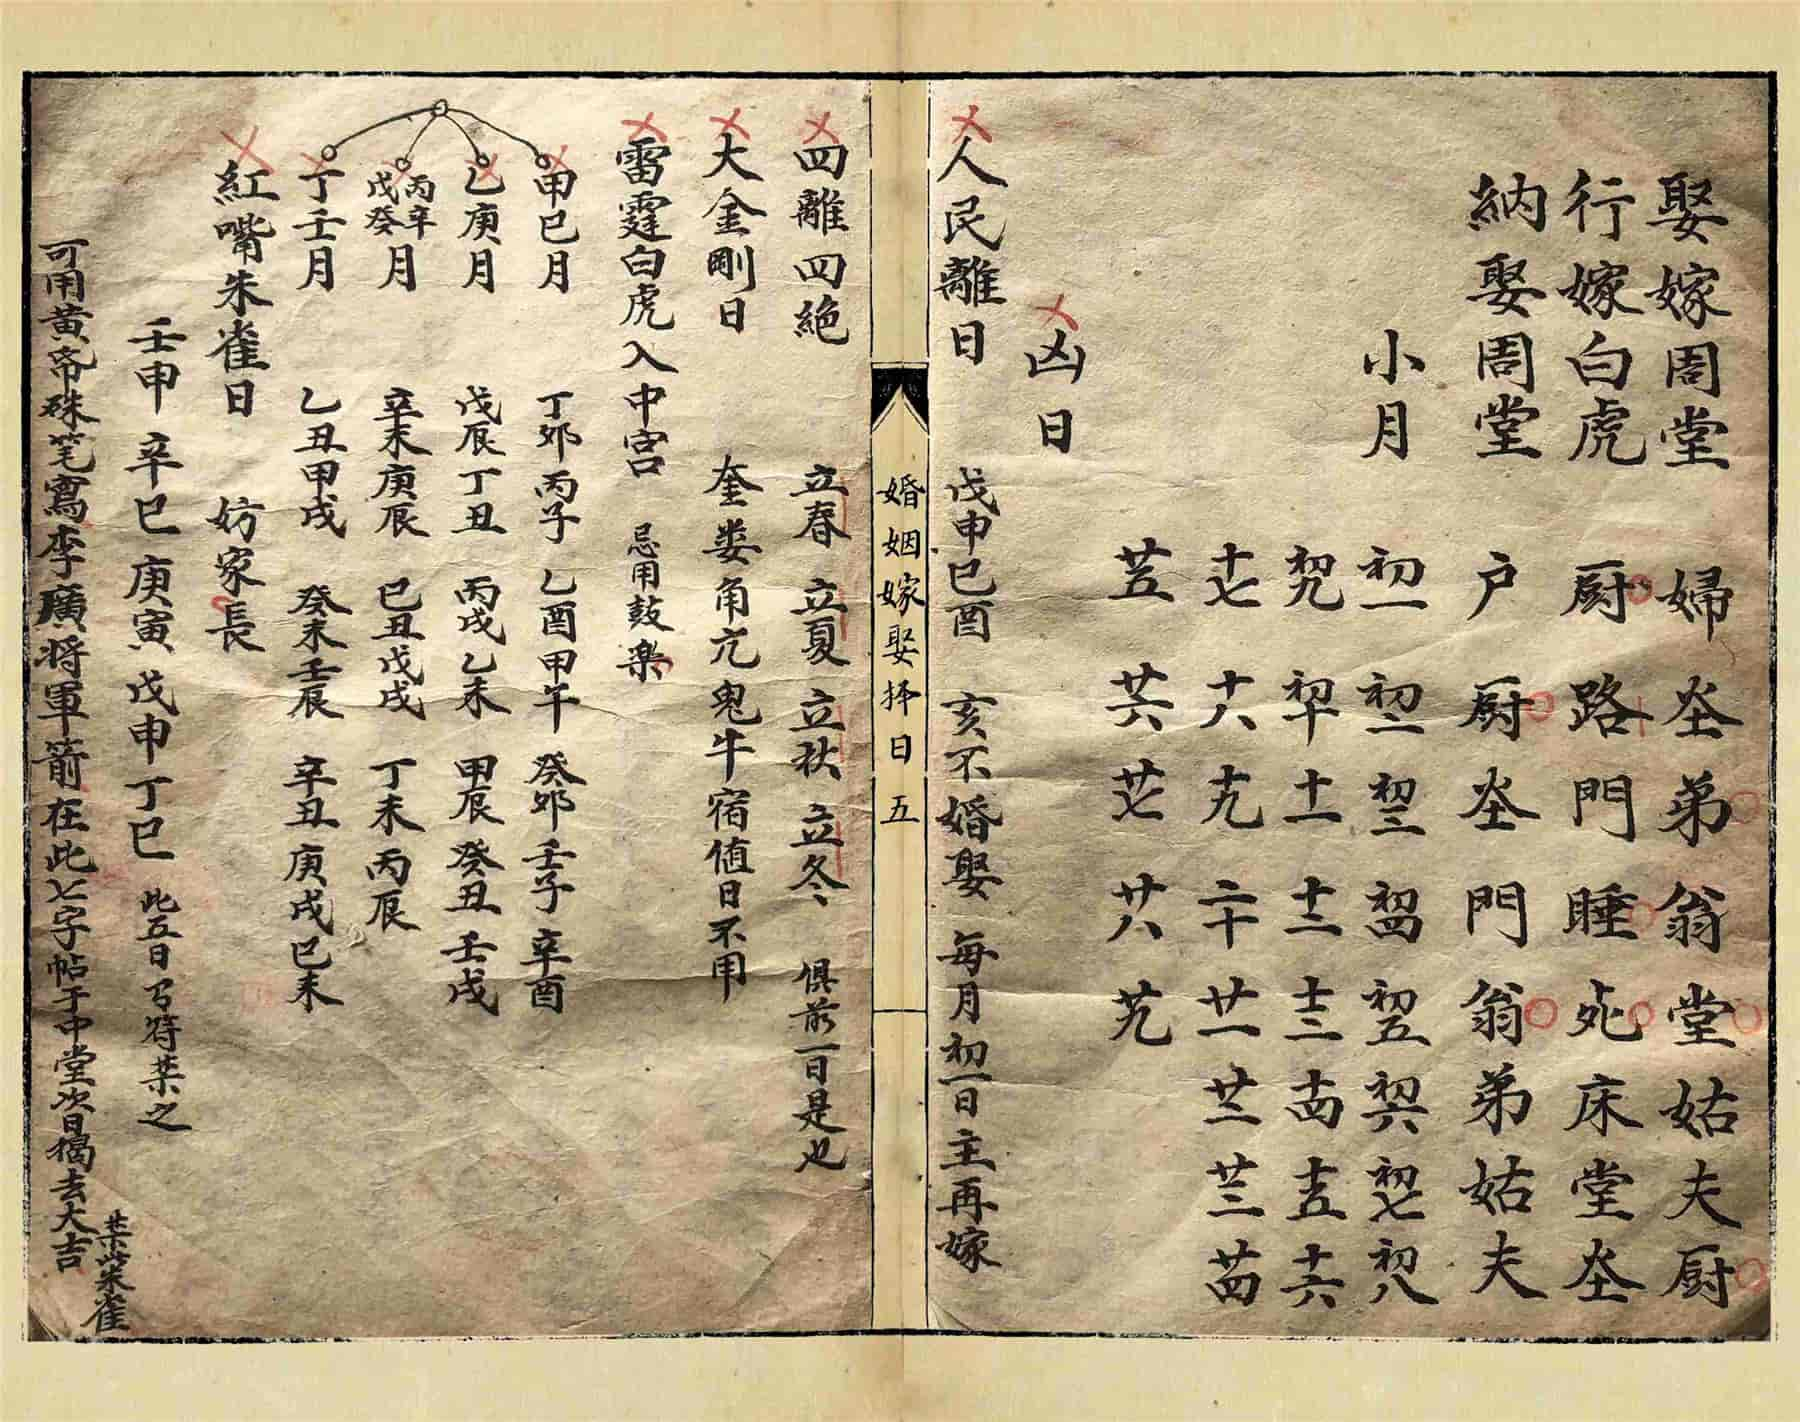 娶嫁周堂 婦 灶 弟 翁 堂 姑 夫 厨
行嫁白虎 厨 路 門 睡 死 床 堂 灶
納娶周堂 户 厨 灶 門 翁 弟 姑 夫
小月 初一 初二 初三 初四 初五 初六 初七 初八
初九 初十 十一 十二 十三 十四 十五 十六
十七 十八 十九 二十 廿一 廿二 廿三 廿四
廿五 廿六 廿七 廿八 廿九
凶日
人民離日 戊申已酉 亥不婚娶 每月初一日主再嫁
婚姻嫁娶择日 五
四離四絶 立春 立夏 立秋 立冬 俱前一日是也
大金剛日 奎娄角亢鬼牛宿值日不用
雷霆白虎入中宫 忌用鼓樂
甲已月 丁卯丙子 乙酉甲午 癸卯壬子 辛酉
乙庚月 戊辰丁丑 丙戌乙未 甲辰癸丑 壬戌
丙辛戊癸月 辛未庚辰 已丑戊戌 丁未丙辰
丁壬月 乙丑甲戌 癸未壬辰 辛丑庚戌 已未
紅嘴朱雀日 妨家長
壬申 辛巳 庚寅 戊申 丁巳 此五日 符禁之
可用黄帝硃笔寫李廣将軍箭在此七字帖于中堂次日揭去大吉
朱雀